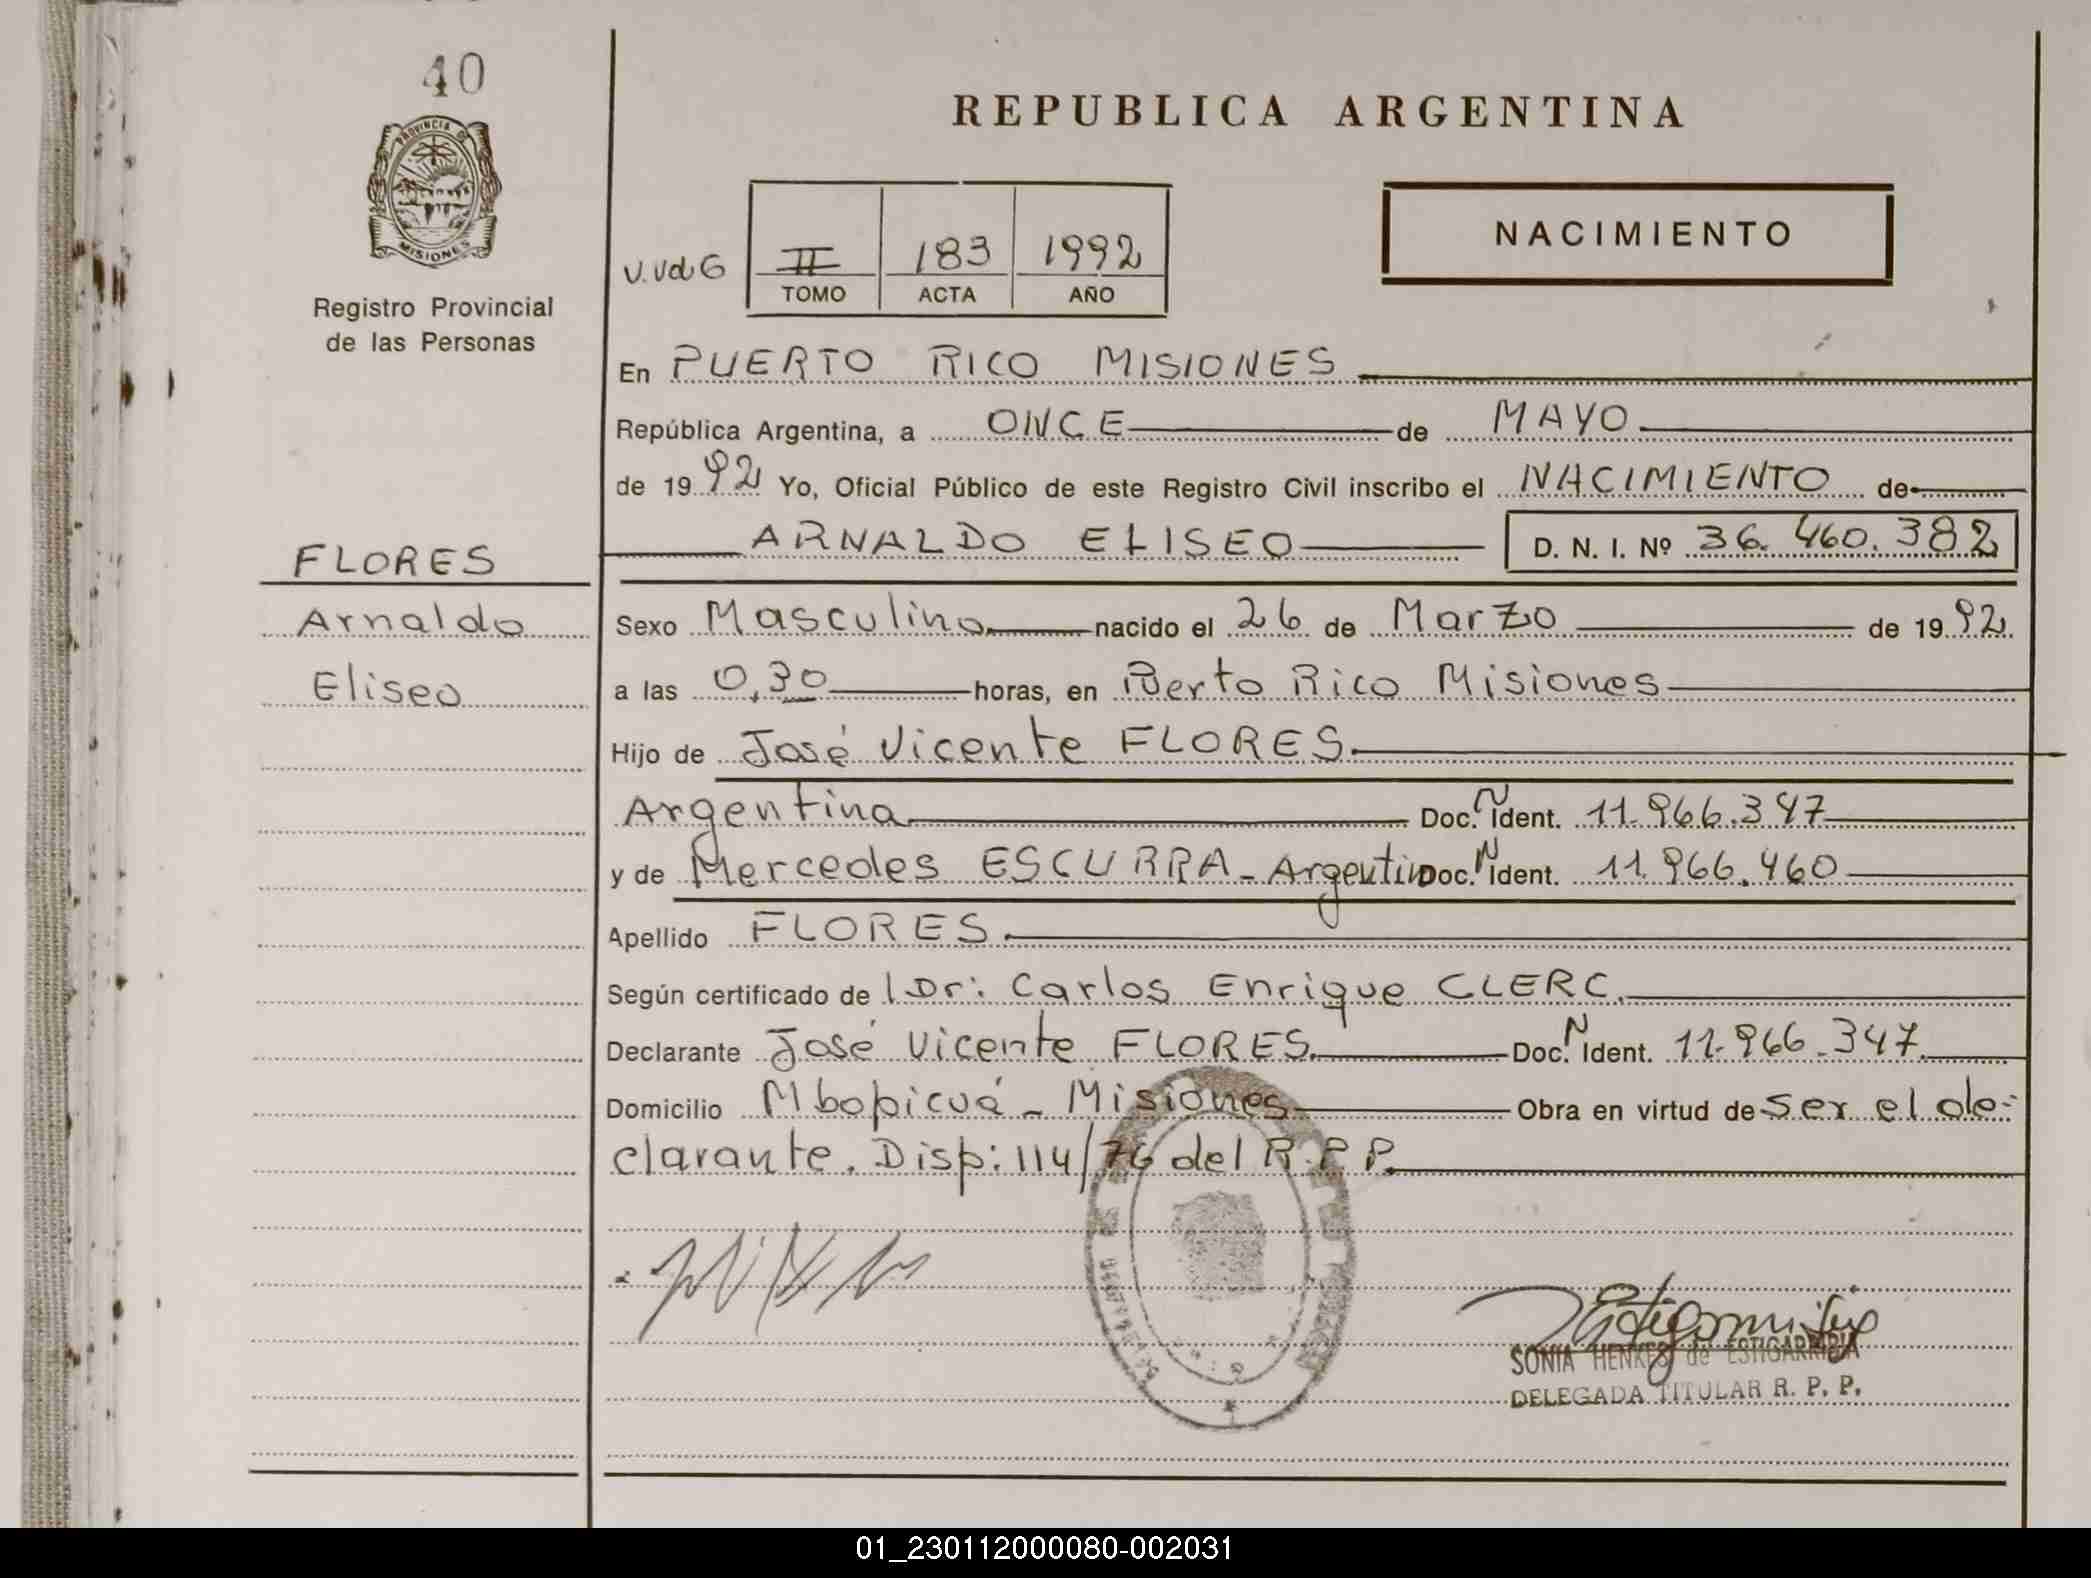 40
PROVINCIA DE
MISIONES
Registro Provincial
de las Personas
FLORES
Arnaldo
Eliseo
REPUBLICA ARGENTINA
NACIMIENTO
II 183 1992
TOMO ACTA AÑO
En PUERTO RICO MISIONES
República Argentina, a ONCE de MAYO
de 1992 Yo, Oficial Público de este Registro Civil inscribo el NACIMIENTO de
ARNALDO ELISEO D. N. I. Nº 36.460.382
Sexo Masculino nacido el 26 de Marzo de 1992
a las 0,30 horas, en Puerto Rico Misiones
Hijo de José Vicente FLORES.
Argentina Doc. N Ident. 11.966.347
y de Mercedes ESCURRA - Argentin Doc. N Ident. 11.966.460
Apellido FLORES.
Según certificado de l Dr: Carlos Enrique CLERC.
Declarante José Vicente FLORES. Doc. N Ident. 11.966.347
Domicilio Mbopicuá - Misiones Obra en virtud de ser el de-
clarante. Disp: 114/76 del R.P.P.
SONIA HENKES de ESTIGARRIBIA
DELEGADA TITULAR R. P. P.
01_230112000080-002031